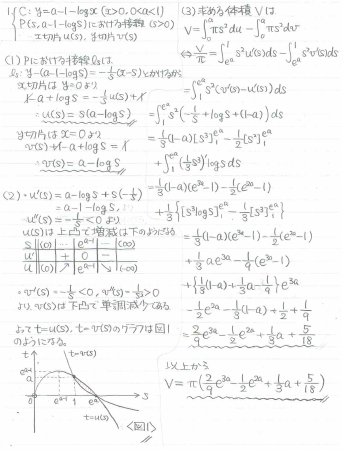 1. C: y=a-1-logx (x>0, 0<a<1)
P(s, a-1-logs)における接線 (s>0)
x切片 u(s), y切片 v(s)
(1) Pにおける接線lsは
ls: y-(a-1-logs)=-1/s(x-s)とかけるから
x切片は y=0より
1-a+logs=-1/s u(s)+1
∴u(s)=s(a-logs)
y切片は x=0より
v(s)+1-a+logs=1
∴v(s)=a-logs
(2)・u'(s)=a-logs+s(-1/s)
=a-1-logs,
u''(s)=-1/s<0 より
u(s)は上凸で増減は下のようになる
s (0) … e^{a-1} … (∞)
u' + 0 -
u (0) ↗ ↘ (-∞)
・v'(s)=-1/s<0, v''(s)=1/s²>0
より v(s)は下凸で単調減少である
よって t=u(s), t=v(s)のグラフは図1
のようになる。
t t=v(s)
e^{a-1}
a
0 e^{a-1} 1 e^a s
t=u(s) <図1>
(3) 求める体積 V は
V=∫₀^a πs²du-∫₀^a πs²dv
⇔ V/π=∫_{e^a}^1 s²u'(s)ds-∫_{e^a}^1 s²v'(s)ds
=∫_1^{e^a} s²(v'(s)-u'(s))ds
=∫_1^{e^a} s²(-1/s+logs+(1-a))ds
=1/3(1-a)[s³]_1^{e^a}-1/2[s²]_1^{e^a}
+∫_1^{e^a}(1/3s³)'logs ds
=1/3(1-a)(e^{3a}-1)-1/2(e^{2a}-1)
+1/3{[s³logs]_1^{e^a}-1/3[s³]_1^{e^a}}
=1/3(1-a)(e^{3a}-1)-1/2(e^{2a}-1)
+1/3ae^{3a}-1/9(e^{3a}-1)
={1/3(1-a)+1/3a-1/9}e^{3a}
-1/2e^{2a}-1/3(1-a)+1/2+1/9
=2/9e^{3a}-1/2e^{2a}+1/3a+5/18
以上から
V=π(2/9e^{3a}-1/2e^{2a}+1/3a+5/18)